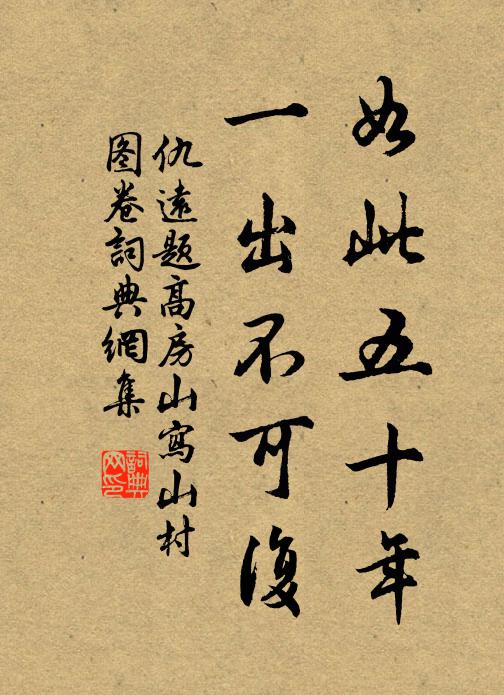 如此五十年
一出不可復
仇遠題高房山寫山村
图卷詞典網集
詞典
网印